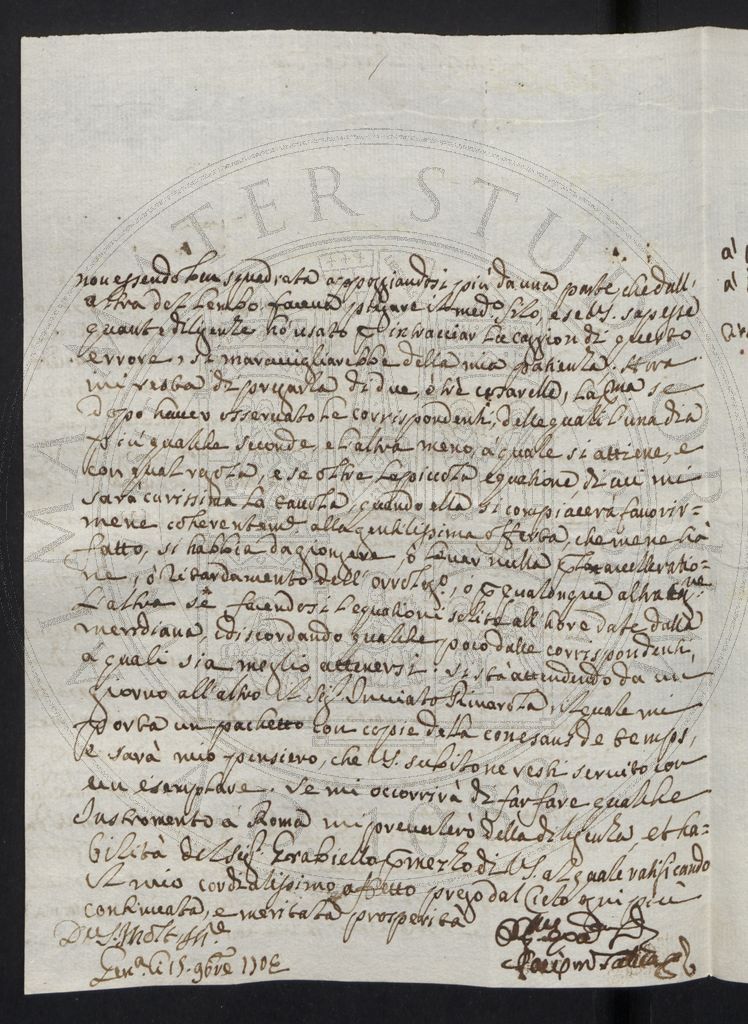 non essendo ben squadrata appoggiandosi più da una parte, che dall'
altra del tempo faceva piegare il med.º filo, e se V.S. sapesse
quante diligenze hò usato p rintracciar la cagion di questo
errore, si maraviglierebbe della mia patienza. Hora
mi resta di pregarla di due, ò trè cosarelle, La pma se
dopò haver osservato le corrispondenti, delle quali l'una dia
più qualche seconde, e l'altra meno, à quale si attiene, e
con qual regola, e se oltre la piccola equatione, di cui mi
sarà carissima la tavola, quando ella si compiacerà favorir=
mene coherentem.e alla gentilissima offerta, che me ne hà
fatto, si habbia da giongere, ò levar nulla p l'accelleratio=
ne, ò ritardamento dell'orrolog.º, ò p qualonque altra
L'altra se facendosi le equationi solite all'hore date dalla
meridiana, e discordando qualche poco dalle corrispondenti,
à quali sia meglio attenersi. Si stà attendendo da un
giorno all'altro il Sig.r il quale mi
porta un pachetto con copie della conesans de temps,
e sarà mio pensiero, che V.S. subito ne resti servito con
un esemplare. Se mi occorrirà di far fare qualche
Instromento à Roma mi prevalerò della diligenza, et ha=
bilità del Sig.r p mezzo di V.S. al quale ratificando
il mio cordialissimo affetto prego dal Cielo ogni più
continuata, e meritata prosperità
Di V.S. Molt Ill.e
Gen.ª li 15. 9bre 1702